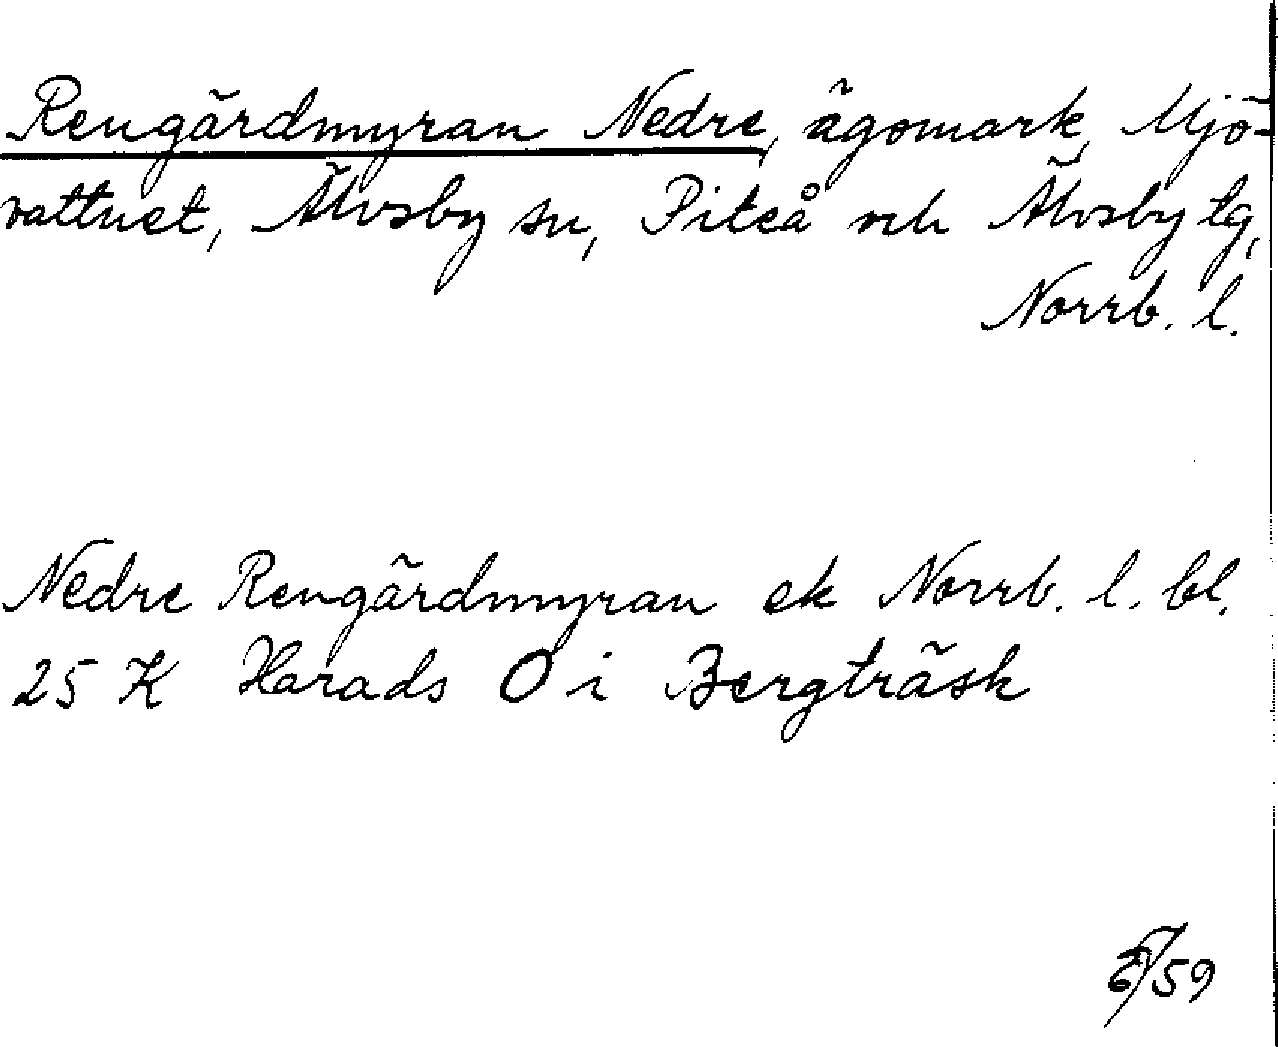 Rengärdmyran Nedre, ägomark, Mjö-
vattnet, Älvsby sn, Piteå och Älvsby tg,
Norrb. l.
Nedre Rengärdmyran ek Norrb. l. bl.
25 K Harads O i Bergträsk
/59